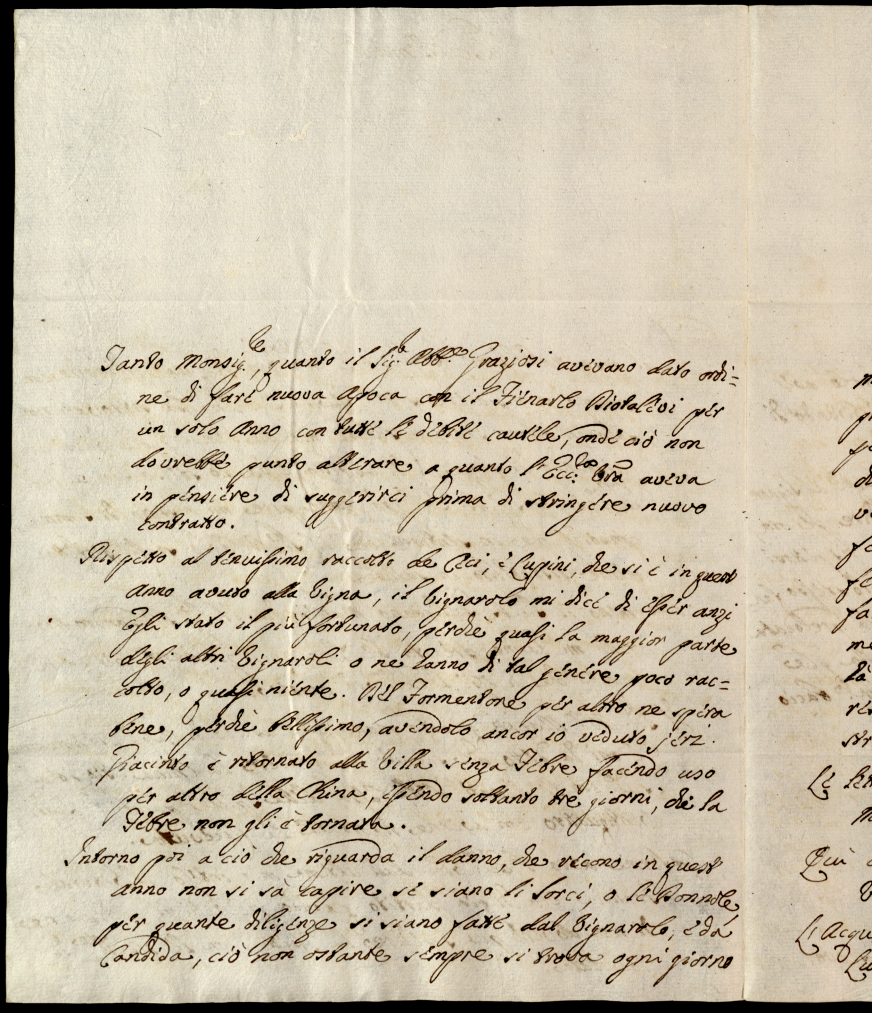 Tanto Monsig.re, quanto il Sig.r Abb.e Graziosi avevano dato ordi=
ne di fare nuova Apoca con il Fienarlo per
un solo Anno con tutte le debite cautele, onde ciò non
dovrebbe punto alterare a quanto l'Ecc.za Vrã aveva
in pensiere di suggerirci prima di stringere nuovo
contratto.
Rispetto al tenuissimo raccolto de Ceci, e Lupini, che si è in quest
anno avuto alla Vigna, il Vignarolo mi dice di esser anzi
Egli stato il più fortunato, perchè quasi la maggior parte
degli altri Vignaroli o ne hanno di tal genere poco rac=
colto, o quasi niente. Del Formentone per altro ne spera
bene, perchè bellissimo, avendolo ancor io veduto jeri.
Giacinto è ritornato alla Villa senza Febre facendo uso
per altro della China, essendo soltanto tre giorni, che la
Febre non gli è tornata.
Intorno poi a ciò che riguarda il danno, che recono in quest
anno non si sà capire se siano li Sorci, o le Donnole,
per quante diligenze si siano fatte dal Vignarolo, e da
Candida, ciò non ostante sempre si trova ogni giorno
Le
Qui
L'Acqu